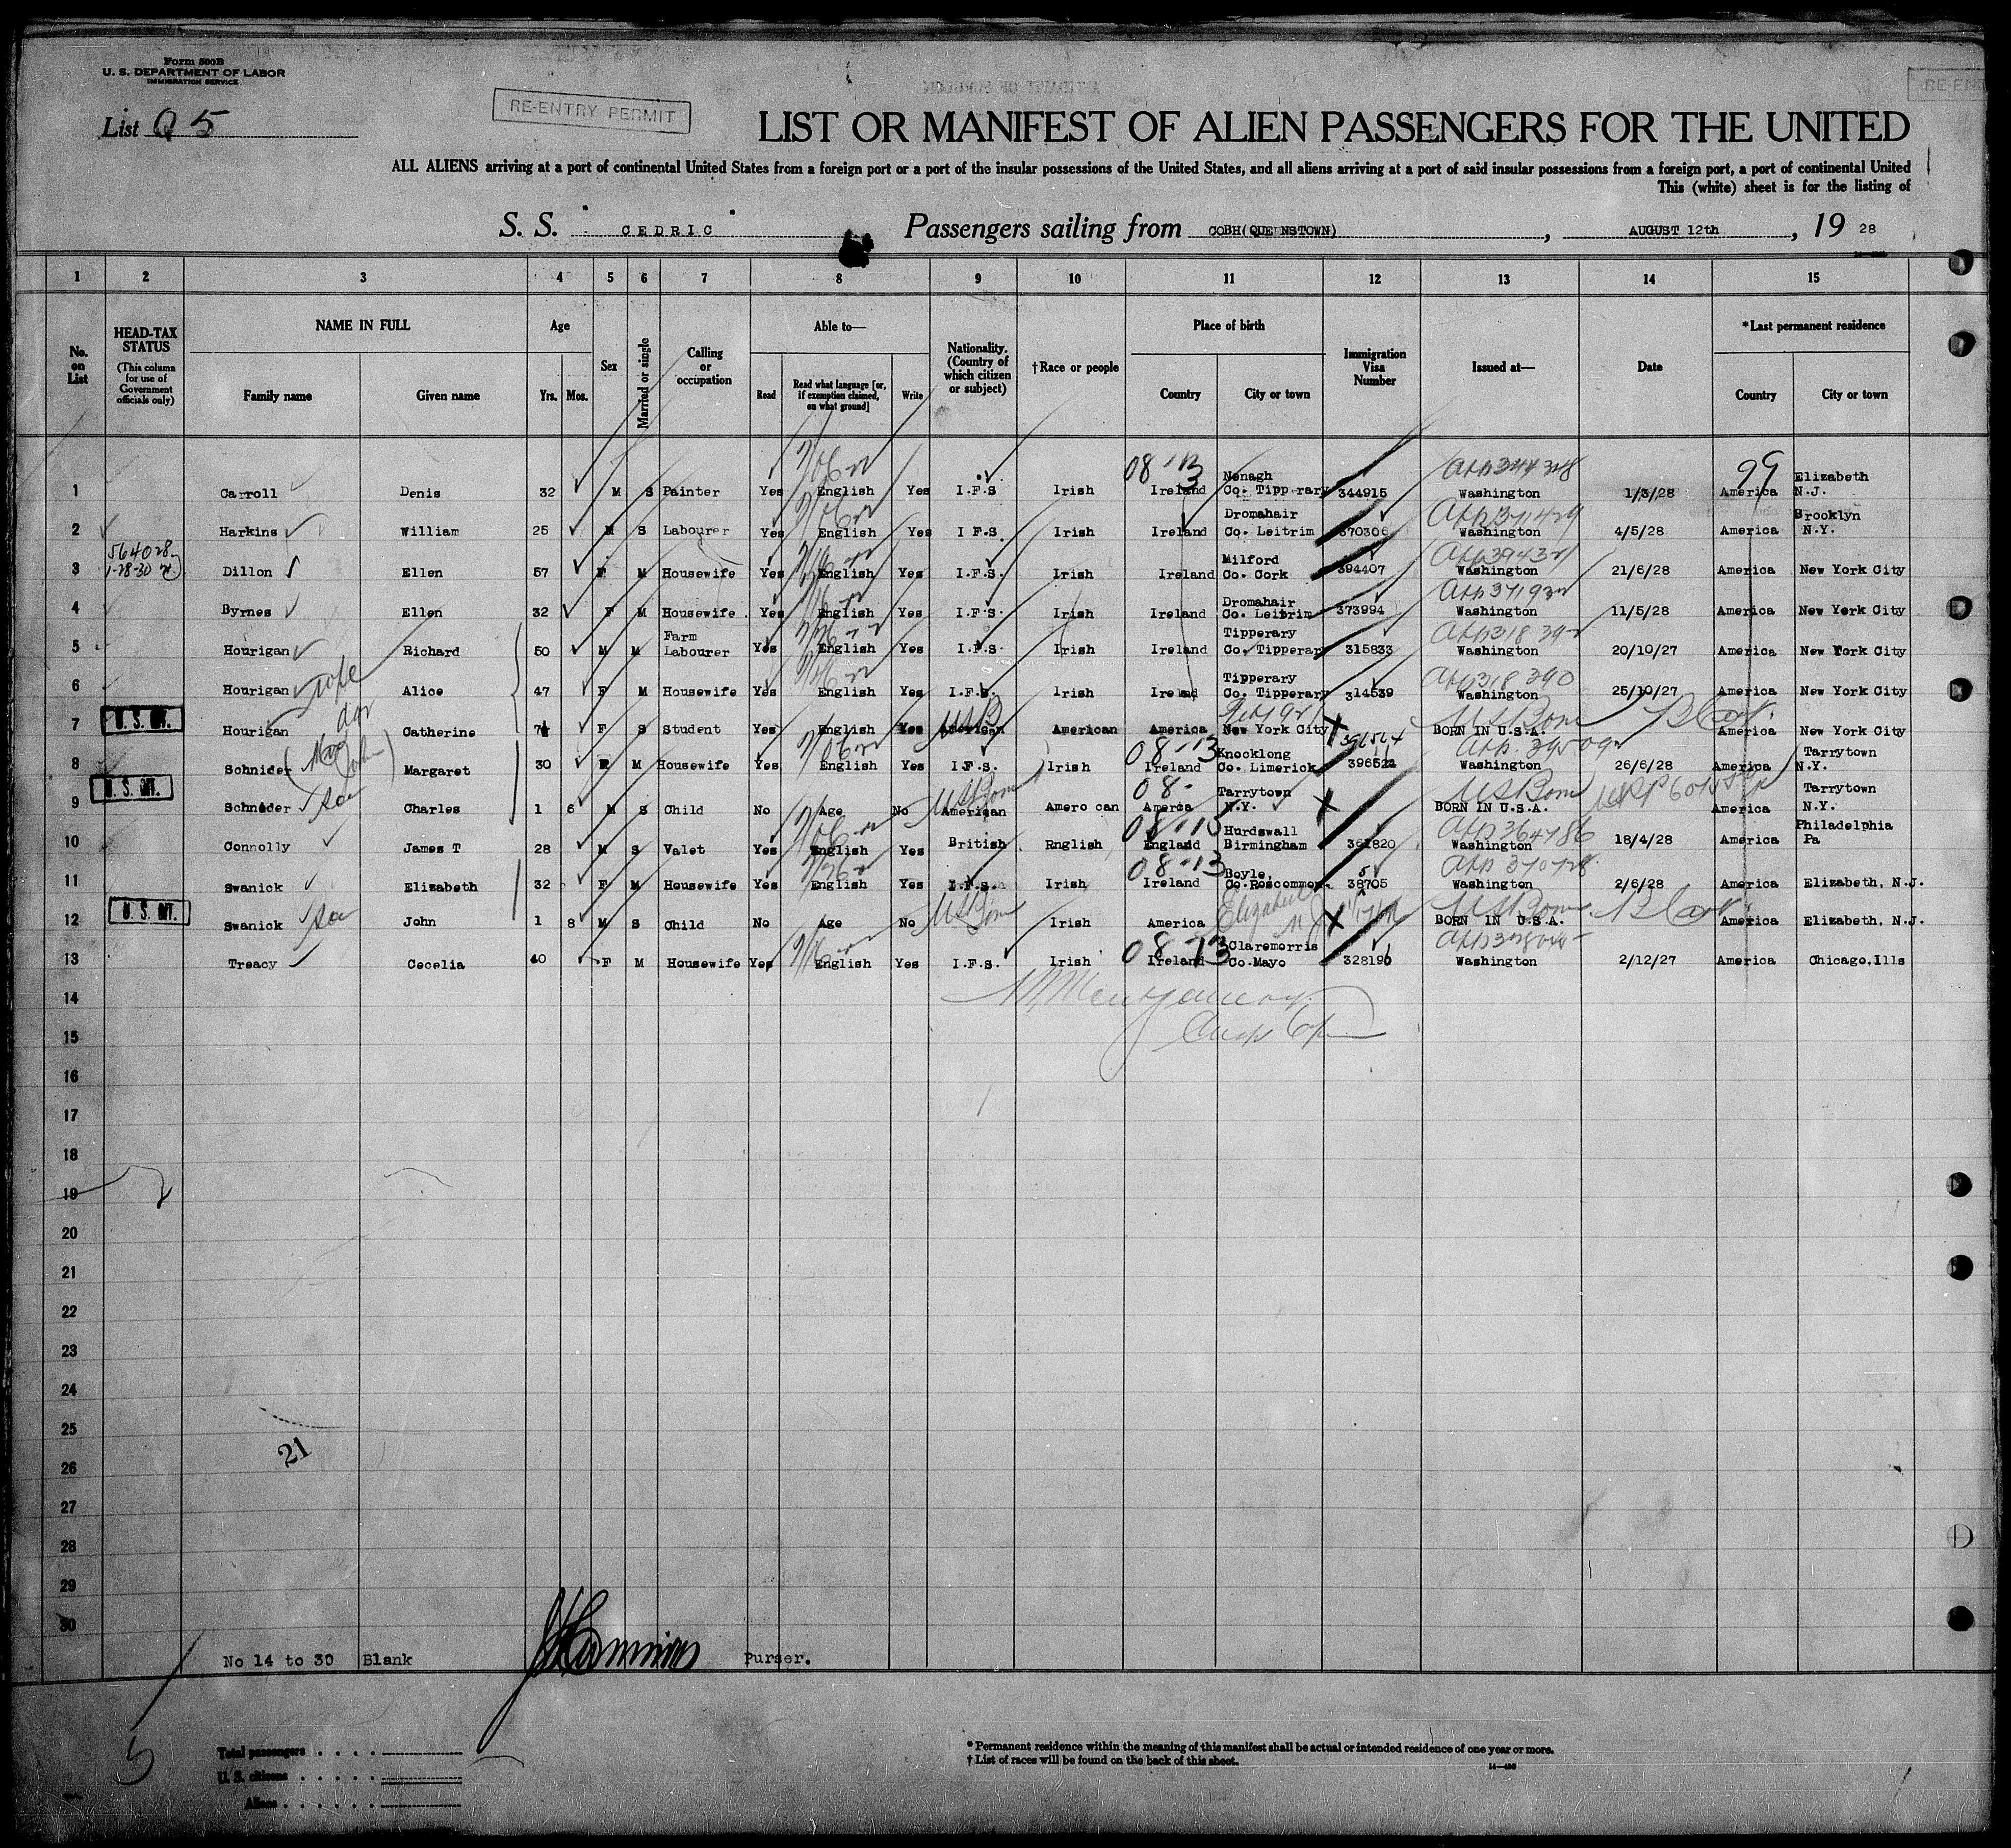 Form 500B
U. S. DEPARTMENT OF LABOR
IMMIGRATION SERVICE
List Q 5
RE-ENTRY PERMIT
RE-EN
LIST OR MANIFEST OF ALIEN PASSENGERS FOR THE UNITED
ALL ALIENS arriving at a port of continental United States from a foreign port or a port of the insular possessions of the United States, and all aliens arriving at a port of said insular possessions from a foreign port, a port of continental United
This (white) sheet is for the listing of
S. S. CEDRIC Passengers sailing from COBH(QUEENSTOWN), AUGUST 12th, 19 28
1 2 3 4 5 6 7 8 9 10 11 12 13 14 15
No. on List
HEAD-TAX STATUS (This column for use of Government officials only)
NAME IN FULL Family name Given name
Age Yrs. Mos.
Sex
Married or single
Calling or occupation
Able to— Read Read what language [or, if exemption claimed, on what ground] Write
Nationality. (Country of which citizen or subject)
†Race or people
Place of birth Country City or town
Immigration Visa Number
Issued at—
Date
*Last permanent residence Country City or town
1 Carroll Denis 32 M S Painter Yes English Yes I.F.S Irish 08-13 Ireland Nenagh Co. Tipp rary 344915 Washington 1/3/28 99 America Elizabeth N.J.
2 Harkins William 25 M S Labourer Yes English Yes I F.S. Irish Ireland Dromahair Co. Leitrim 370306 Washington 4/5/28 America Brooklyn N.Y.
3 Dillon Ellen 57 F M Housewife Yes English Yes I.F.S. Irish Ireland Milford Co. Cork 394407 Washington 21/6/28 America New York City
4 Byrnes Ellen 32 F M Housewife Yes English Yes I.F.S. Irish Ireland Dromahair Co. Leitrim 373994 Washington 11/5/28 America New York City
5 Hourigan Richard 50 M M Farm Labourer Yes English Yes I.F.S. Irish Ireland Tipperary Co. Tipperar 315833 Washington 20/10/27 America New York City
6 Hourigan wife Alice 47 F M Housewife Yes English Yes I.F.S. Irish Ireland Tipperary Co. Tipperary 314539 Washington 25/10/27 America New York City
7 U. S. CIT. Hourigan Catherine 7 F S Student Yes English Yes American American America New York City BORN IN U.S.A. US Born America New York City
8 Schnider Margaret 30 F M Housewife Yes English Yes I.F.S. Irish 08-13 Ireland Knocklong Co. Limerick Washington 26/6/28 America Tarrytown N.Y.
9 U. S. CIT. Schneder Charles 1 6 M S Child No Age No US Born American Amero can 08- Amerca Tarrytown N.Y. BORN IN U.S.A. US Born America Tarrytown N.Y.
10 Connolly James T 28 M S Valet Yes English Yes British Rnglish England Hurdswall Birmingham Washington 18/4/28 America Philadelphia Pa
11 Swanick Elizabeth 32 F M Housewife Yes English Yes I.F.S. Irish 08-13 Ireland Boyle, Co.Roscommon. Washington 2/6/28 America Elizabeth, N.J.
12 U. S. CIT. Swanick John 1 8 M S Child No Age No US Born Irish America Elizabeth BORN IN U.S.A. US Born America Elizabeth, N.J.
13 Treacy Cecelia 40 F M Housewife Yes English Yes I.F.S. Irish 08-13 Ireland Claremorris Co.Mayo 328190 Washington 2/12/27 America Chicago,Ills
14
15
16
17
18
19
20
21
22
23
24
25
21
26
27
28
29
30
No 14 to 30 Blank Purser.
5
Total passengers
U. S. citizens
Aliens
* Permanent residence within the meaning of this manifest shall be actual or intended residence of one year or more.
† List of races will be found on the back of this sheet.